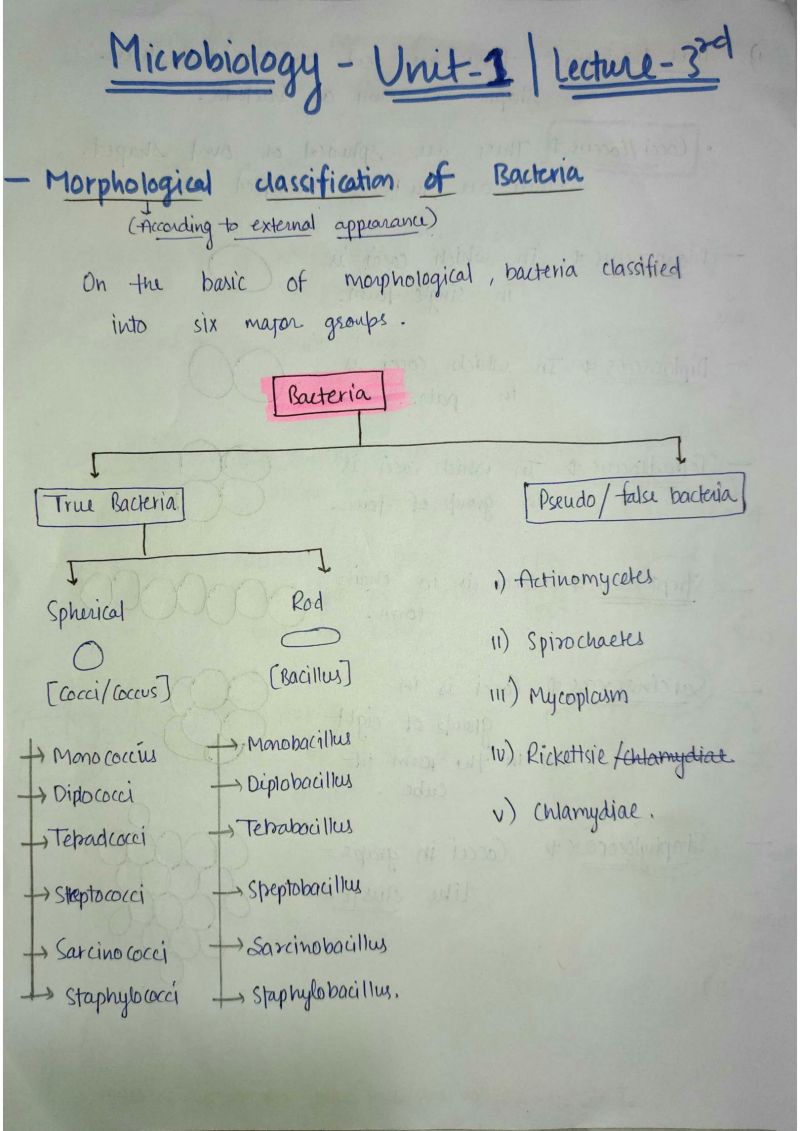 Microbiology - Unit-1 | Lecture-3rd
– Morphological classification of Bacteria
(According to external appearance)
On the basic of morphological, bacteria classified
into six major groups.
Bacteria
True Bacteria
Pseudo/false bacteria
Spherical
[Cocci/Coccus]
Monococcius
Diplococci
Tetradcocci
Streptococci
Sarcinococci
Staphylococci
Rod
[Bacillus]
Monobacillus
Diplobacillus
Tetrabacillus
Streptobacillus
Sarcinobacillus
Staphylobacillus.
i) Actinomycetes
ii) Spirochaetes
iii) Mycoplasm
iv) Rickettsie /chlamydiae
v) Chlamydiae.